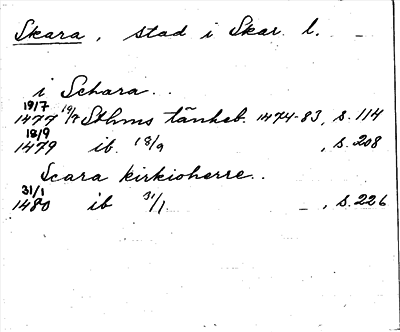 Skara, stad i Skar. l.
i Schara..
19/7
1477 19/7 Sthms tänkeb. 1474-83, s. 114
18/9
1479 ib. 18/9 , s. 208
Scara kirkioherre..
31/1
1480 ib 31/1 - , s. 226